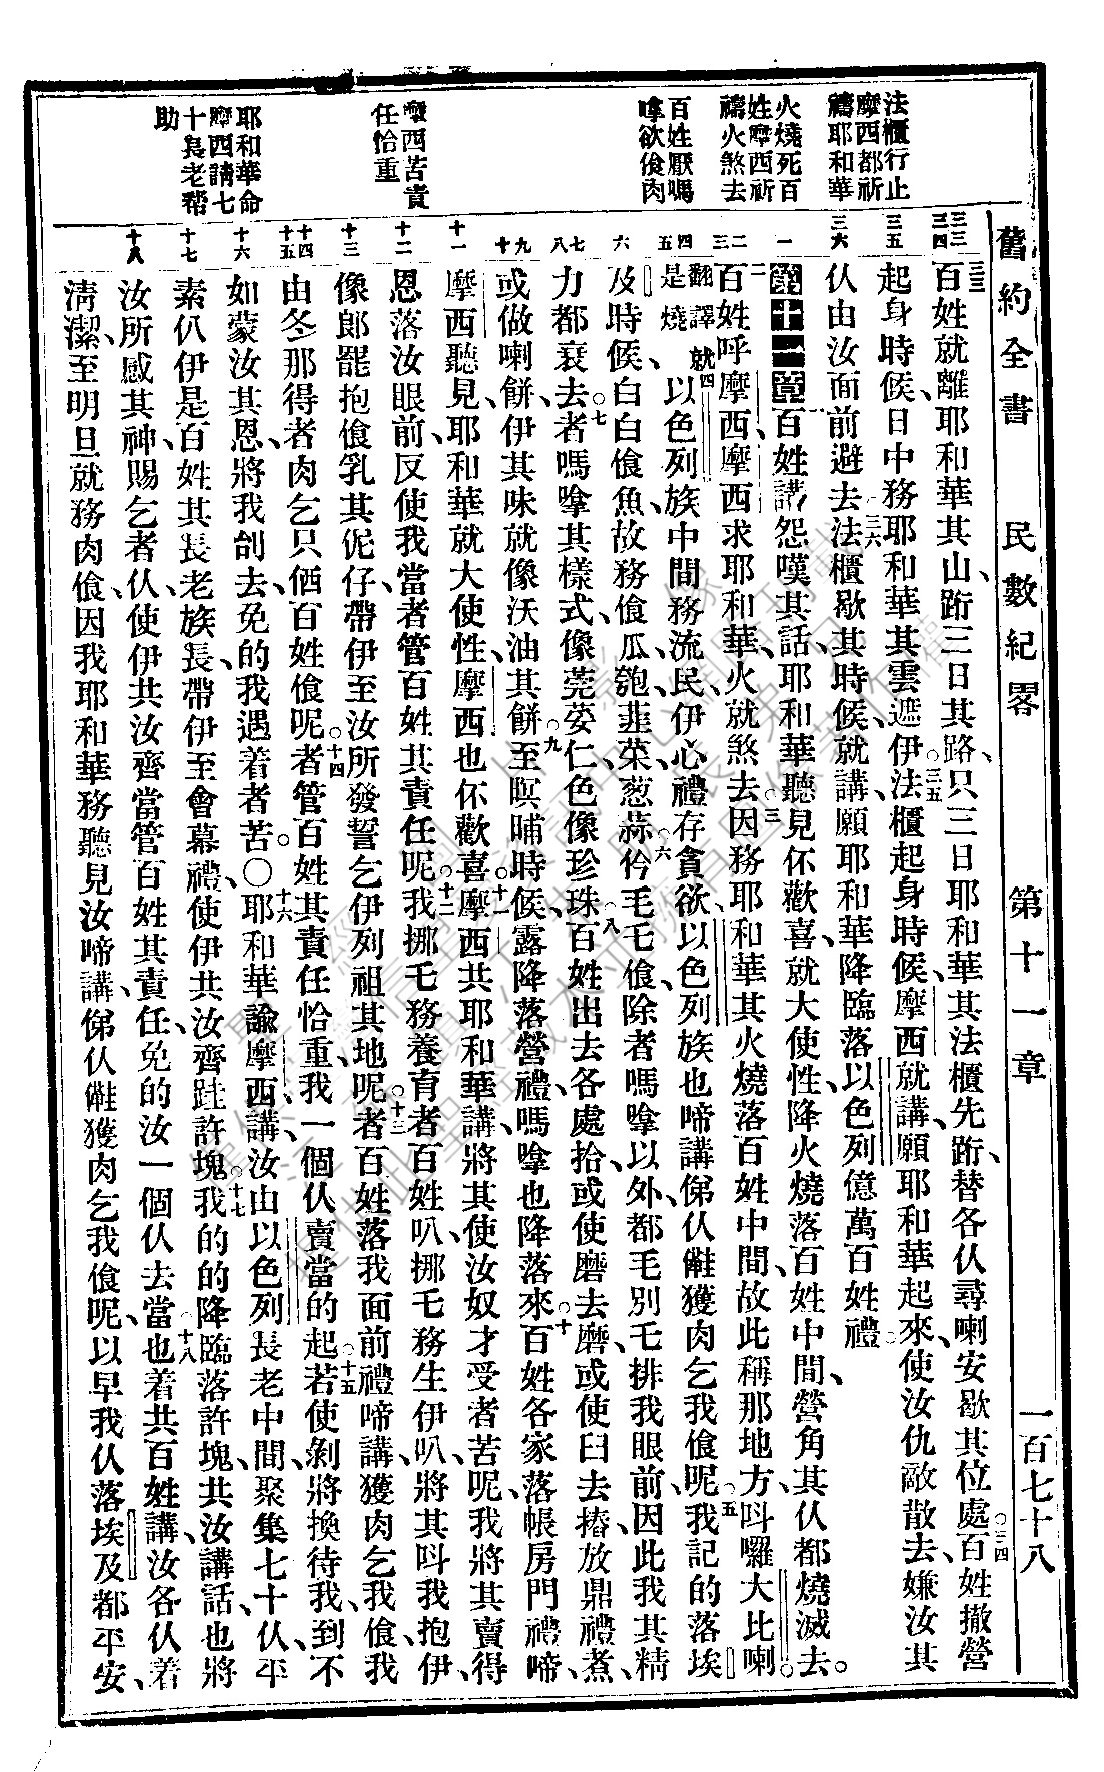 舊約全書　民數紀畧　第十一章　一百七十八
法櫃行止
摩西都祈
禱耶和華
火燒死百
姓摩西祈
禱火煞去
百姓厭嗎
嗱欲飡肉
摩西苦責
任恰重
耶和華命
摩西請七
十長老幫
助
三三
三四
三五
三六
一
二
三
四
五
六
七
八
九
十
十一
十二
十三
十四
十五
十六
十七
十八
三三百姓就離耶和華其山、跻三日其路、只三日耶和華其法櫃先跻替各仈尋喇安歇其位處○三四百姓撤營
起身時候、日中務耶和華其雲遮伊○三五法櫃起身時候、摩西就講、願耶和華起來、使汝仇敵散去、嫌汝其
仈由汝面前避去○三六法櫃歇其時候、就講、願耶和華降臨落以色列億萬百姓禮○
第十一章百姓講怨嘆其話、耶和華聽見伓歡喜、就大使性、降火燒落百姓中間、營角其仈都燒滅去。
二百姓呼摩西、摩西求耶和華、火就煞去○三因務耶和華其火燒落百姓中間、故此稱那地方呌囉大比喇
翻譯就是燒、四以色列族中間務流民、伊心禮存貪欲、以色列族也啼講、俤仈儺獲肉乞我飡呢○五我記的落埃
及時候、白白飡魚、故務飡瓜、匏、韮菜、葱、蒜○六仱乇乇飡、除者嗎嗱以外、都毛別乇排我眼前、因此我其精
力都衰去○七者嗎嗱其樣式像莞荽仁、色像珍珠○八百姓出去各處拾、或使磨去磨、或使臼去摏、放鼎禮煮、
或做喇餅、伊其味就像沃油其餅○九至暝晡時候、露降落營禮、嗎嗱也降落來○十百姓各家落帳房門禮啼、
摩西聽見、耶和華就大使性、摩西也伓歡喜○十一摩西共耶和華講、將其使汝奴才受者苦呢、我將其賣得
恩落汝眼前、反使我當者管百姓其責任呢○十二我挪乇務養育者百姓叭、挪乇務生伊叭、將其呌我抱伊、
像郎罷抱飡乳其伲仔、帶伊至汝所發誓乞伊列祖其地呢○十三者百姓落我面前禮啼講、獲肉乞我飡、我
由冬那得者肉乞只倁百姓飡呢○十四者管百姓其責任恰重、我一個仈賣當的起○十五若使剝將換待我、到不
如蒙汝其恩、將我刣去、免的我遇着者苦。○十六耶和華諭摩西講、汝由以色列長老中間、聚集七十仈、平
素仈伊是百姓其長老族長、帶伊至會幕禮、使伊共汝齊跬許塊○十七我的的降臨落許塊、共汝講話、也將
汝所感其神、賜乞者仈、使伊共汝齊當管百姓其責任、免的汝一個仈去當○十八也着共百姓講、汝各仈着
淸潔、至明旦就務肉飡、因我耶和華務聽見汝啼講、俤仈儺獲肉乞我飡呢、以早我仈落埃及都平安、